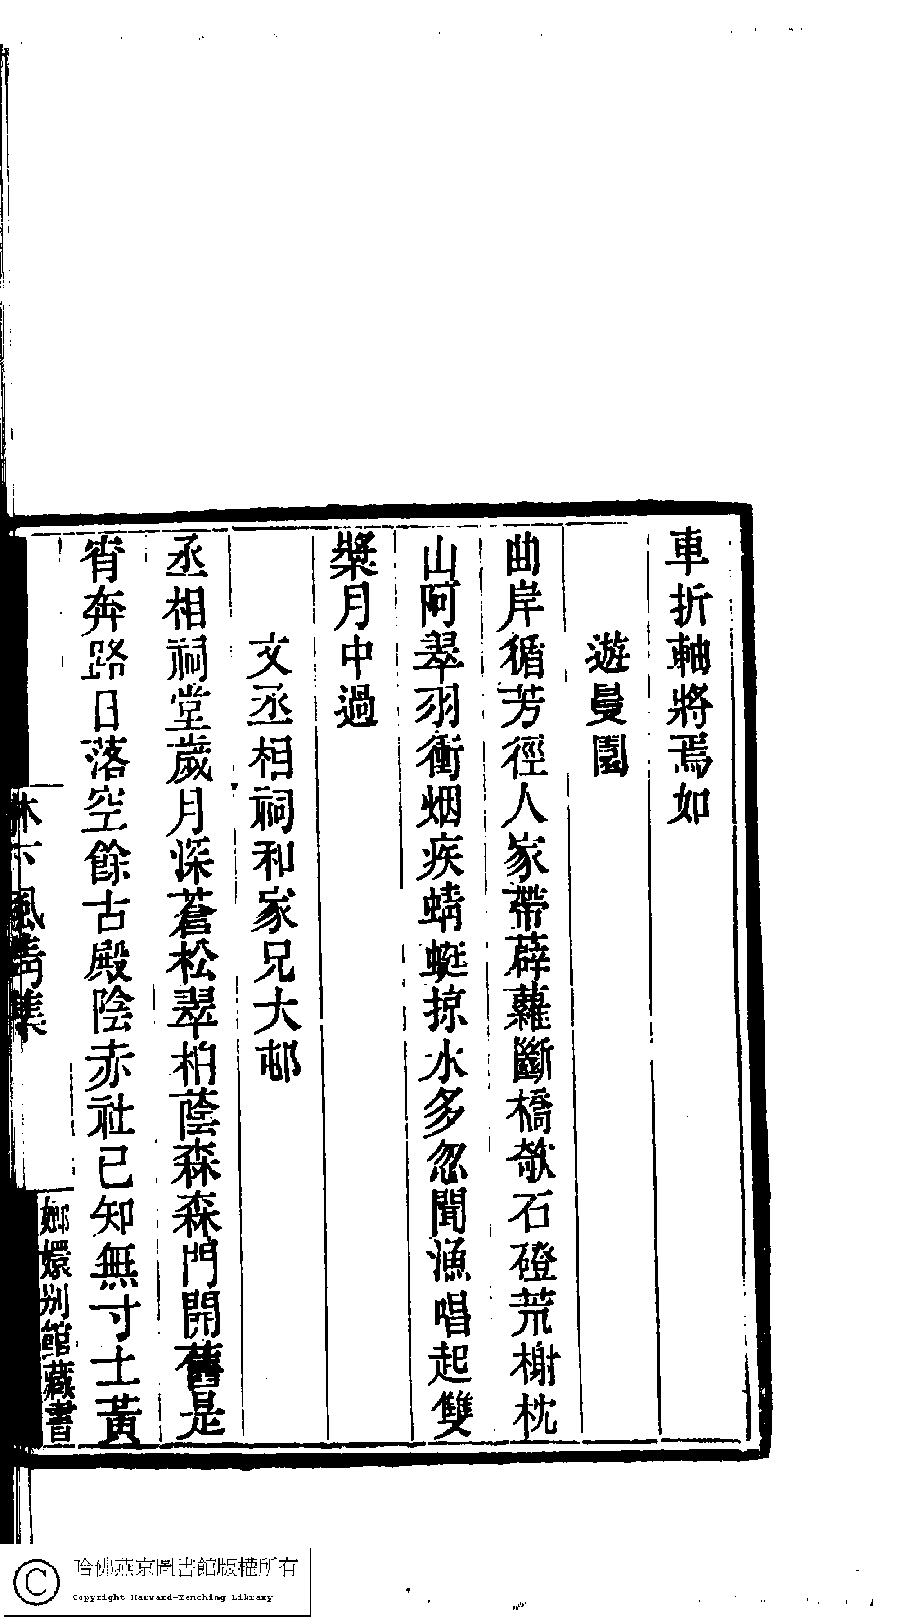 車折軸將焉如
遊曼園
曲岸循芳徑人家帶薜蘿斷橋欹石磴荒榭枕
山阿翠羽衝烟疾蜻蜓掠水多忽聞漁唱起雙
槳月中過
文丞相祠和家兄大邨
丞相祠堂歲月深蒼松翠柏蔭森森門開舊是
宵奔路日落空餘古殿陰赤社已知無寸土黃
林下風清集
嫏嬛別館藏書
哈佛燕京圖書館版權所有
Copyright Harvard-Yenching Library